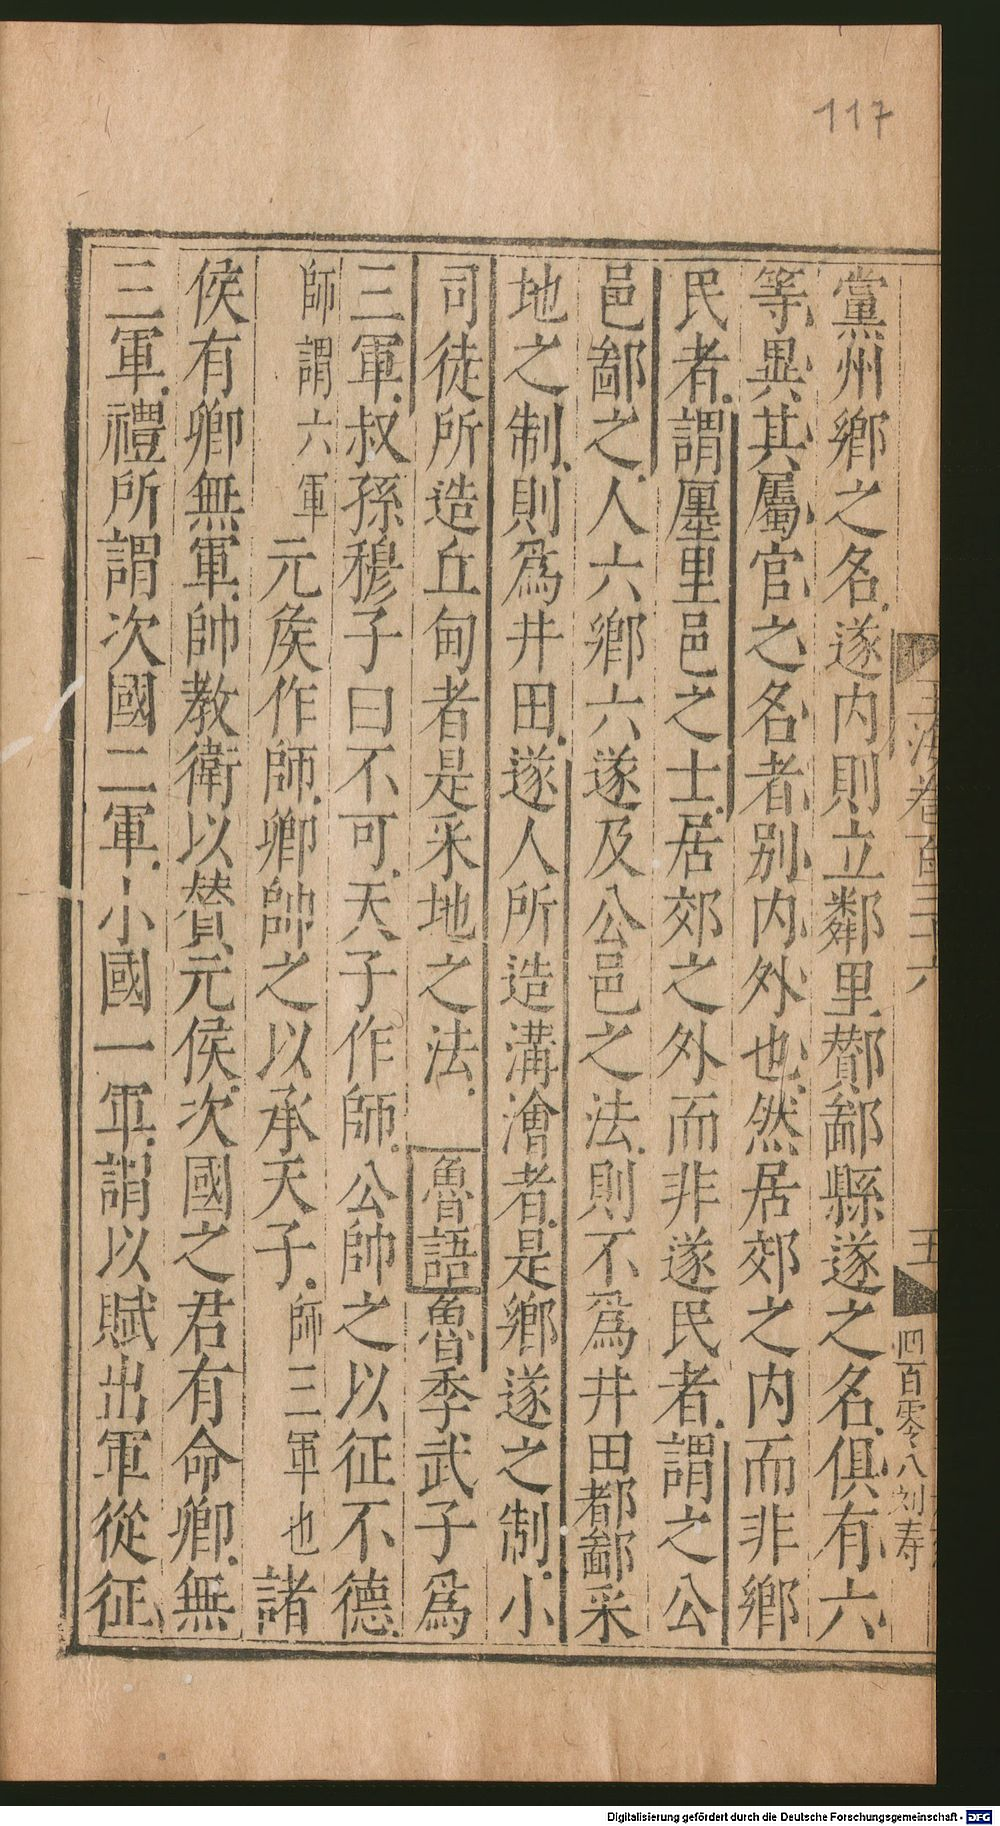 117
玉海卷百三十六
五
四百零八刘寿
黨州鄉之名遂内則立鄰里酇鄙縣遂之名俱有六
等異其屬官之名者别内外也然居郊之内而非鄉
民者謂㕓里邑之士居郊之外而非遂民者謂之公
邑鄙之人六鄉六遂及公邑之法則不爲井田都鄙采
地之制則爲井田遂人所造溝澮者是鄉遂之制小
司徒所造丘甸者是采地之法 魯語魯季武子爲
三軍叔孫穆子曰不可天子作師公帥之以征不德
師謂六軍元矦作師卿帥之以承天子師三軍也諸
侯有卿無軍帥教衛以贊元侯次國之君有命卿無
三軍禮所謂次國二軍小國一軍謂以賦出軍從征
Digitalisierung gefördert durch die Deutsche Forschungsgemeinschaft - DFG